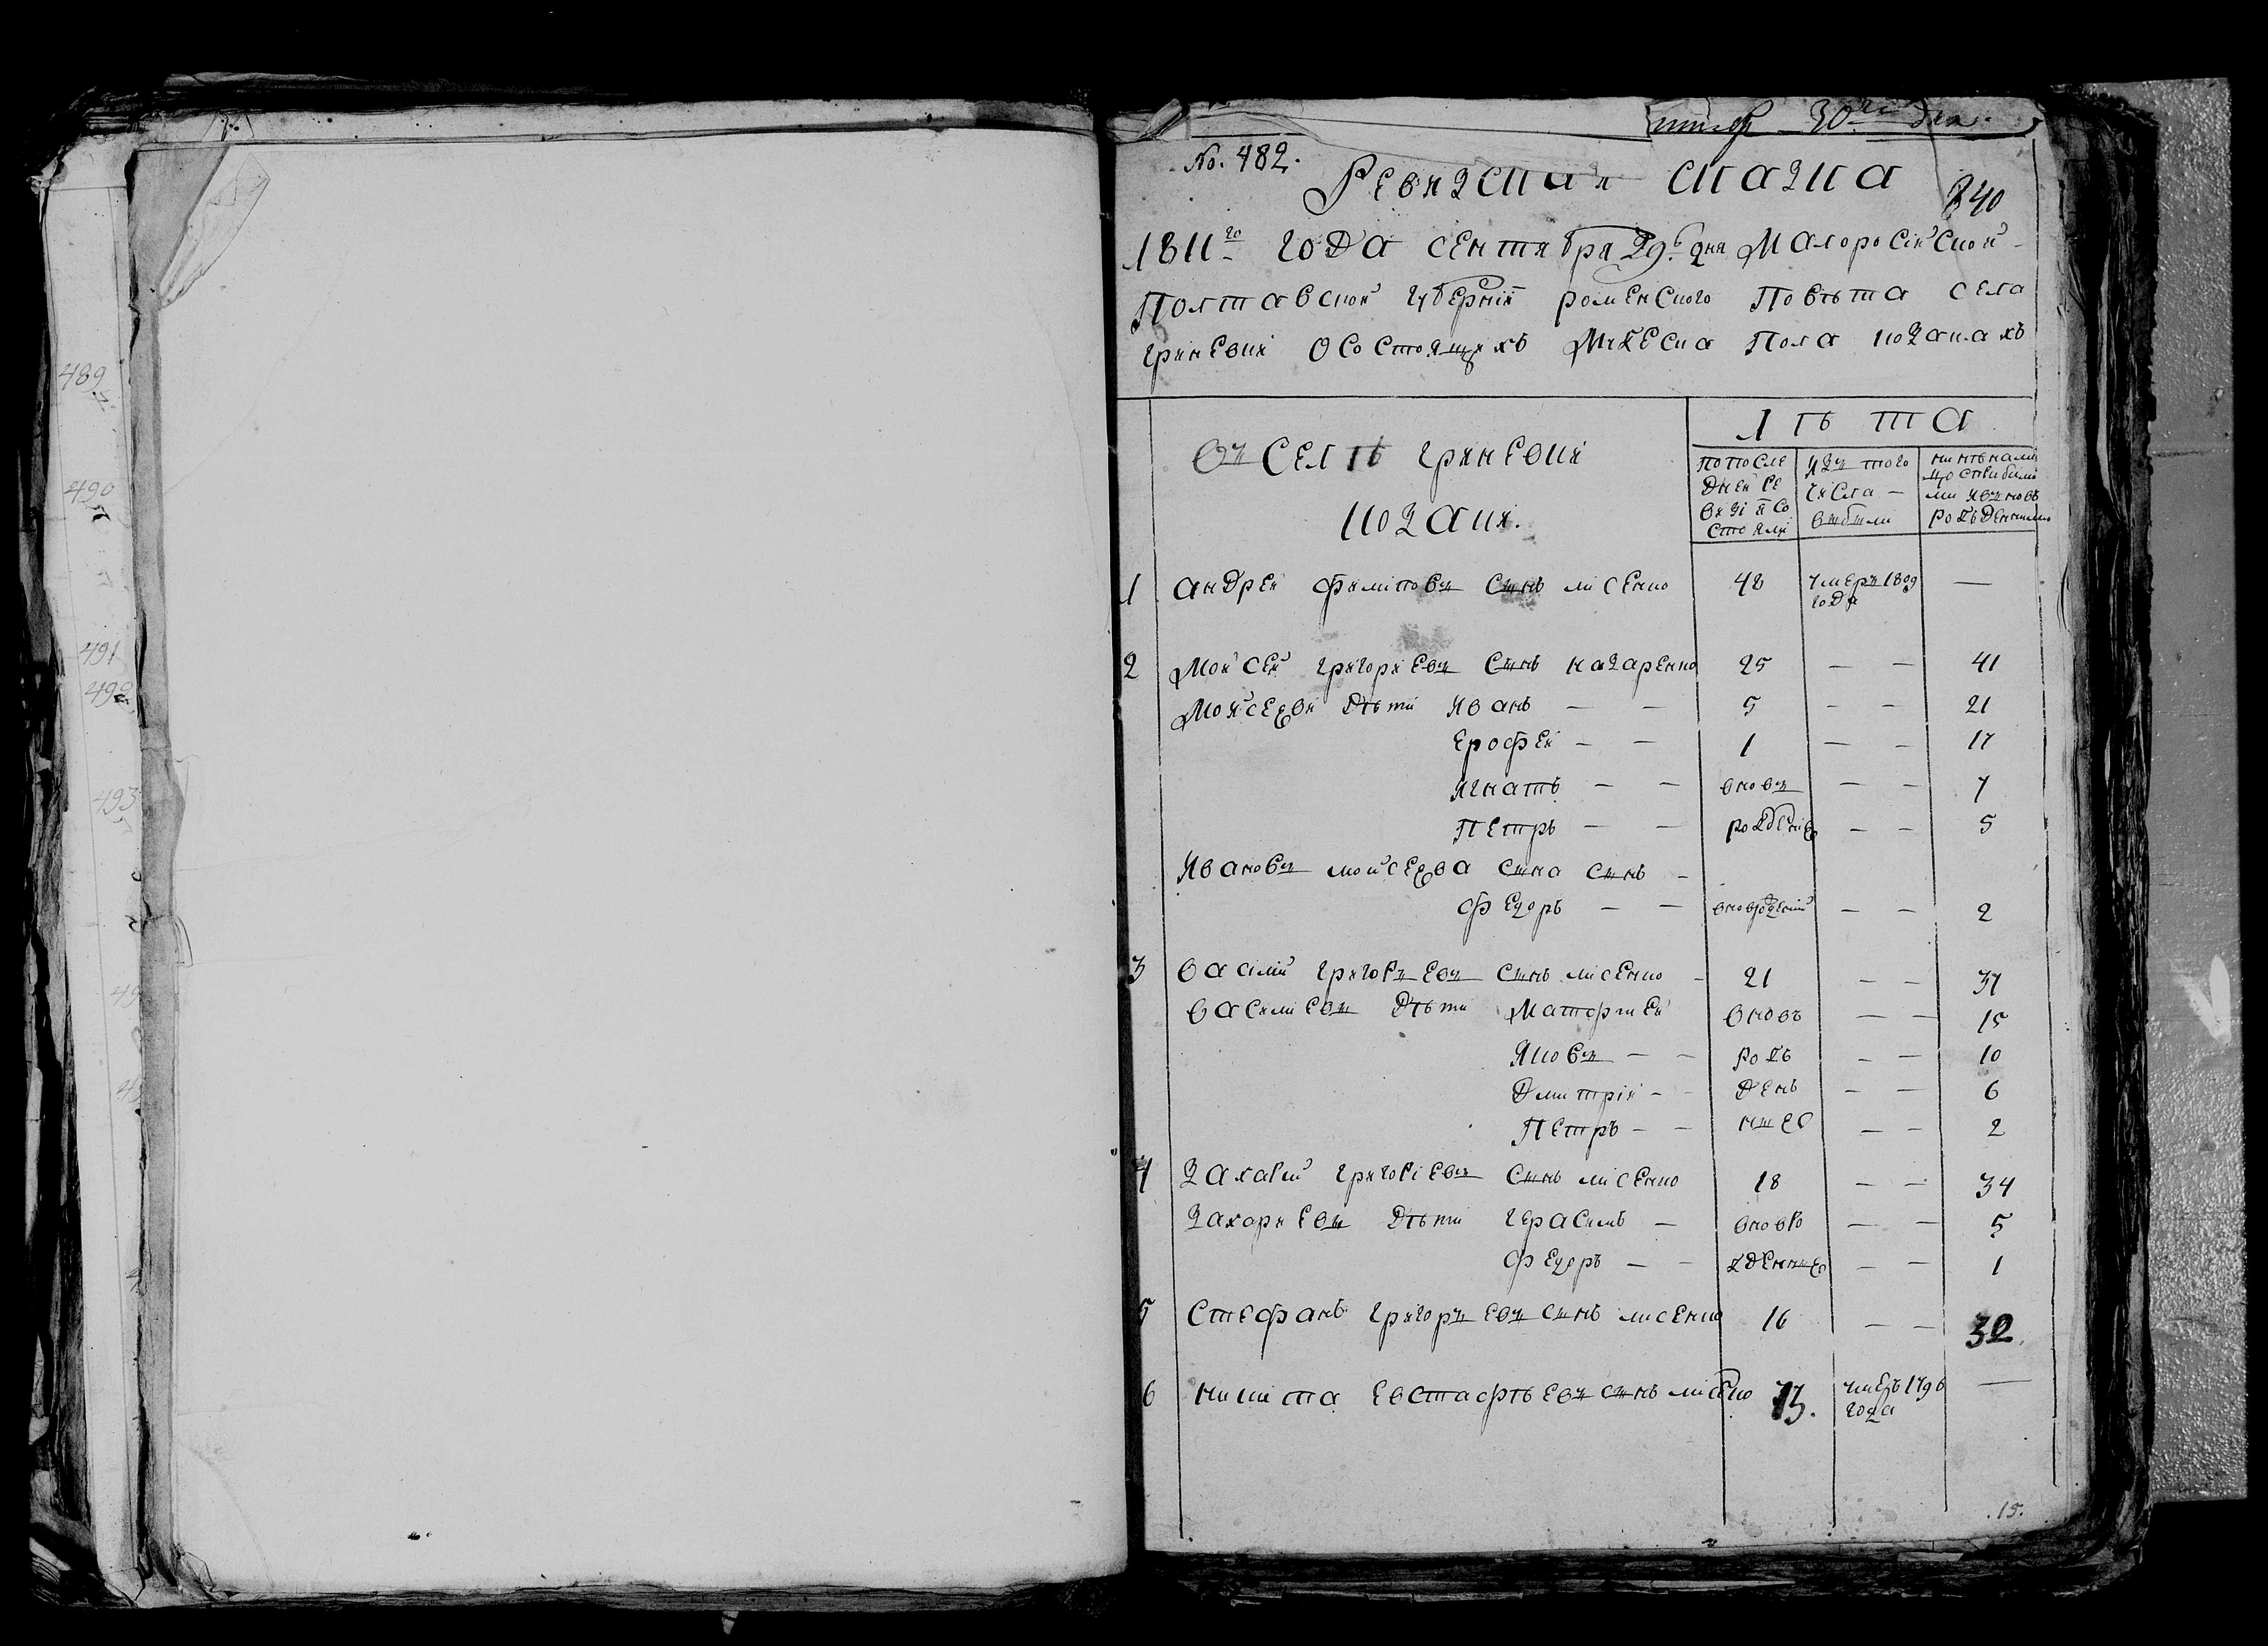 489
490
491
492
493
30го дня.
No. 482.
Ревизская сказка
840
1811го года сентября 29ъ дня Малоросийской
Полтавской губерніи роменского Повѣта села
гриневки о состоящихъ Мужеска Пола козакахъ
лѣта
въ Селѣ гриневки
козаки.
попосле дней ревизіи состояли
изъ того числа выбыли
ныне налицо сприбылыми и вновь рожденными
1 андрей филиповъ сынъ лисенко 48 умеръ 1809 года —
2 Мойсей григориевъ сынъ назаренко 25 — — 41
Мойсеевы дѣти иванъ — — 5 — — 21
ерофей — — 1 — — 17
игнатъ — — вновъ — — 7
Петръ — — рожденіе — — 5
ивановъ мойсеева сына сынъ —
федоръ — — вноврожденій — — 2
3 василий григоръевъ сынъ лисенко — 21 — — 37
василиевы дѣти Матофией вновъ — — 15
яковъ — — рожъ — — 10
дмитрій — — денъ — — 6
Петръ — — ные — — 2
4 захарий григориевъ сынъ лисенко 18 — — 34
захариевы дѣти герасимъ — вновро — — 5
федоръ — — жденные — — 1
5 Стефанъ григоръевъ сынъ лисенко 16 — — 32.
6 никита евстафѣевъ сынъ лисенко 73. умеръ 1796 года —
.15.